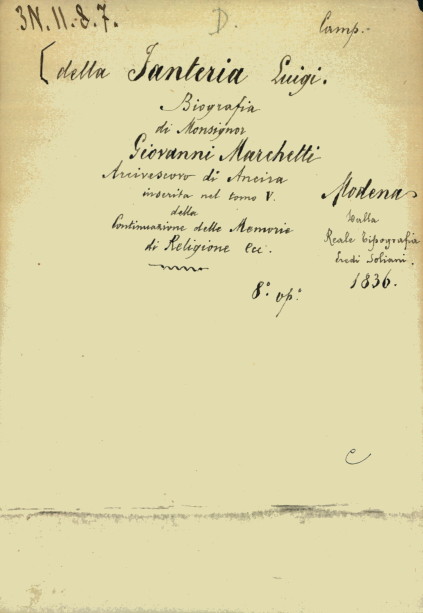 3N.II.8.7.
D.
Camp.-
[della Fanteria Luigi.
Biografia
di Monsignor
Giovanni Marchetti
Arcivescovo di Ancira
inserita nel tomo V.
della
Continuazione delle Memorie
di Religione Ecc.
Modena
Dalla
Reale Tipografia
Eredi Soliani.
1836.
8.° op.°
c